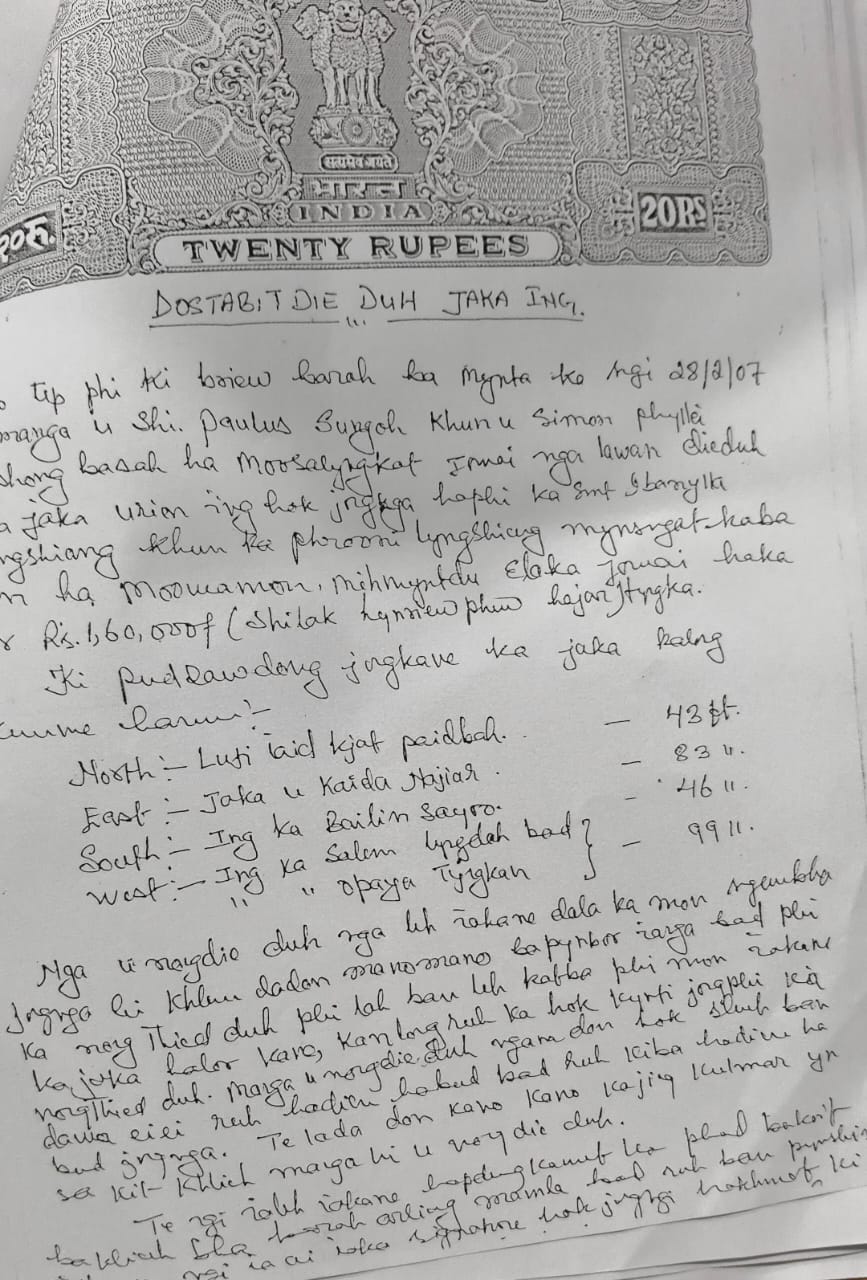 सत्यमेव जयते
भारत
INDIA
२०रु. 20RS
TWENTY RUPEES
DOSTABIT DIE DUH JAKA ING.
tip phi ki briew barah ba mynta ka sngi 28/2/07
manga u Shi. Paulus Sungoh Khun u Simon Phyllei
shong basah ha Moosalyngkat Jowai nga lawan dieduh
jaka ing hok jngnga haphi ka Smt Ibanylla
Lyngshiang khun ka Phrooni Lyngshiang mynsngat kaba
ha Moowamon, Mihmyntdu Elaka Jowai haka
Rs. 1,60,000/- (Shilak hynriewphew hajar) tyngka.
Ki pud sawdong jngkane ka jaka kalng
kumme harum:-
North :- Luti iaid kjat paidbah. - 43 ft.
East :- Jaka u Kaida Najiar. - 83 ".
South :- Ing ka Bailin Sayoo. - 46 ".
West :- Ing ka Salem Lyngdoh bad } - 99 ".
" " Opaya Tyngkan
Nga u nongdie duh nga leh iakane dala ka mon
jngnga hi khlem dadon manomano bapynbor ianga bad phi
ka nong Thied duh phi lah ban leh katba phi mon iakane
ka jaka halor kane, kan long ruh ka hok kynti jongphi ka
nongThied duh. Manga u nongdie duh ngam don hok shuh ban
dawa eiei ruh hadien habud bad ruh kiba hadien ha
bud jngnga. Te lada don kano kano kajing kulmar yn
sa kit khlieh manga hi u nongdie duh.
Te ngi iakane
signature